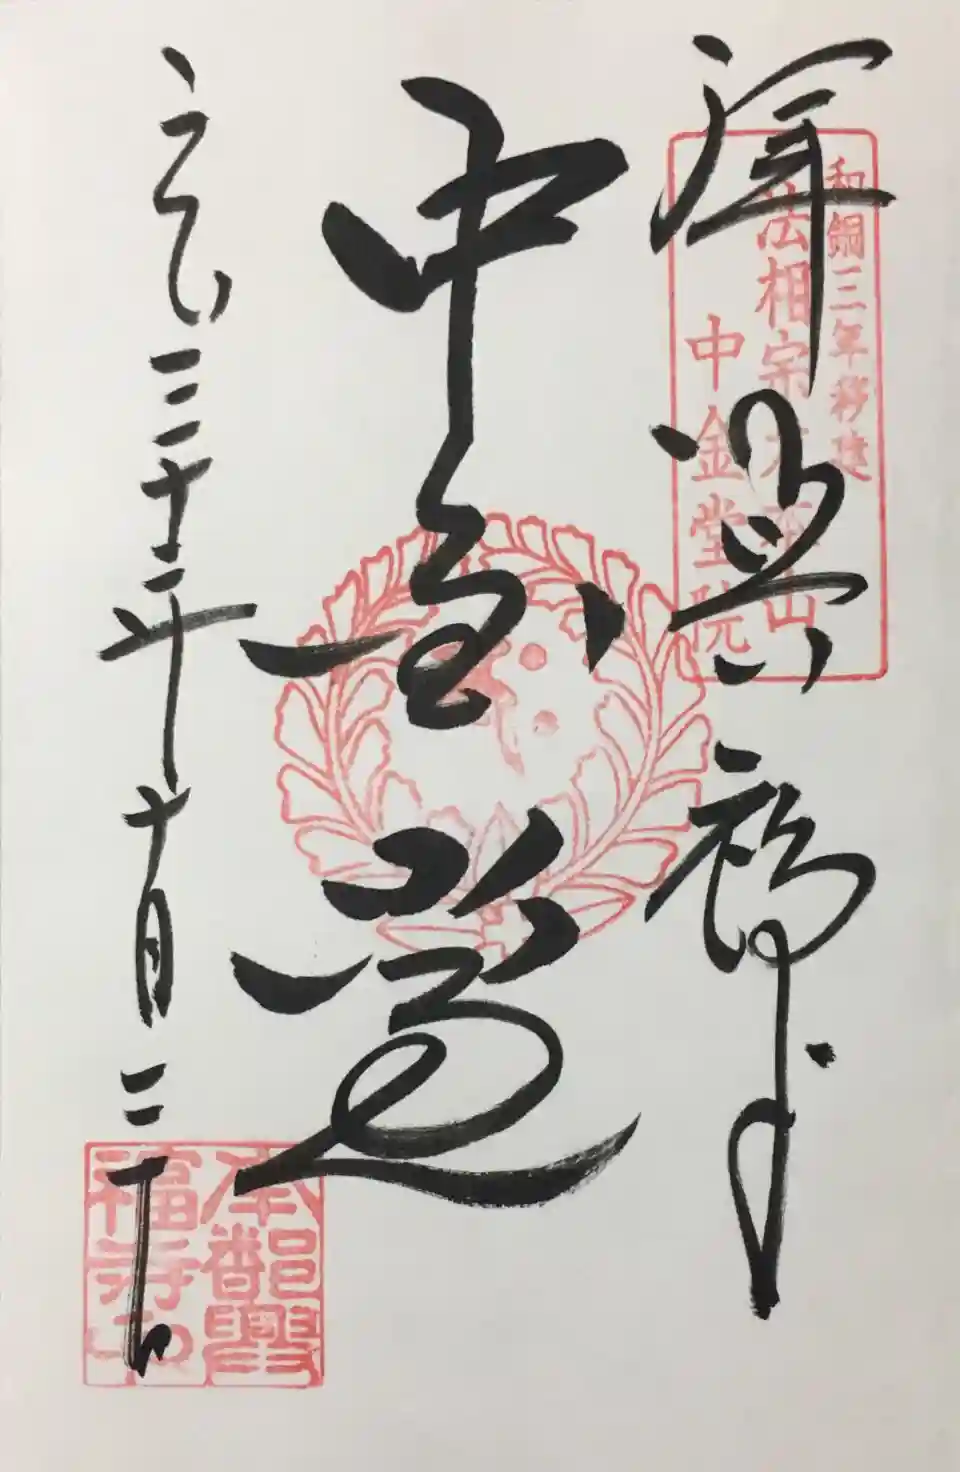 拝 興福寺
和銅三年移建
法相宗大本山
中金堂院
中金堂
平成三十年十月二十日
南都興福寺印